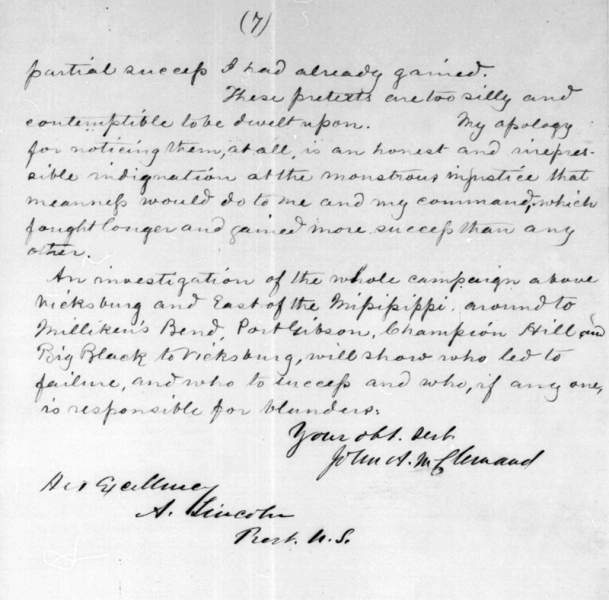 (7)
partial success I had already gained.
These pretexts are too silly and
contemptible to be dwelt upon. My apology
for noticing them, at all, is an honest and irrepres-
sible indignation at the monstrous injustice that
meanness would do to me and my command, which
fought longer and gained more success than any
other.
An investigation of the whole campaign above
Vicksburg and East of the Mississippi, around to
Milliken's Bend, Port Gibson, Champion Hill and
Big Black to Vicksburg, will show who led to
failure, and who to success and who, if any one,
is responsible for blunders.
Your obt. Sert
John A. McClernand
His Excellency
A. Lincoln
Prest. U.S.